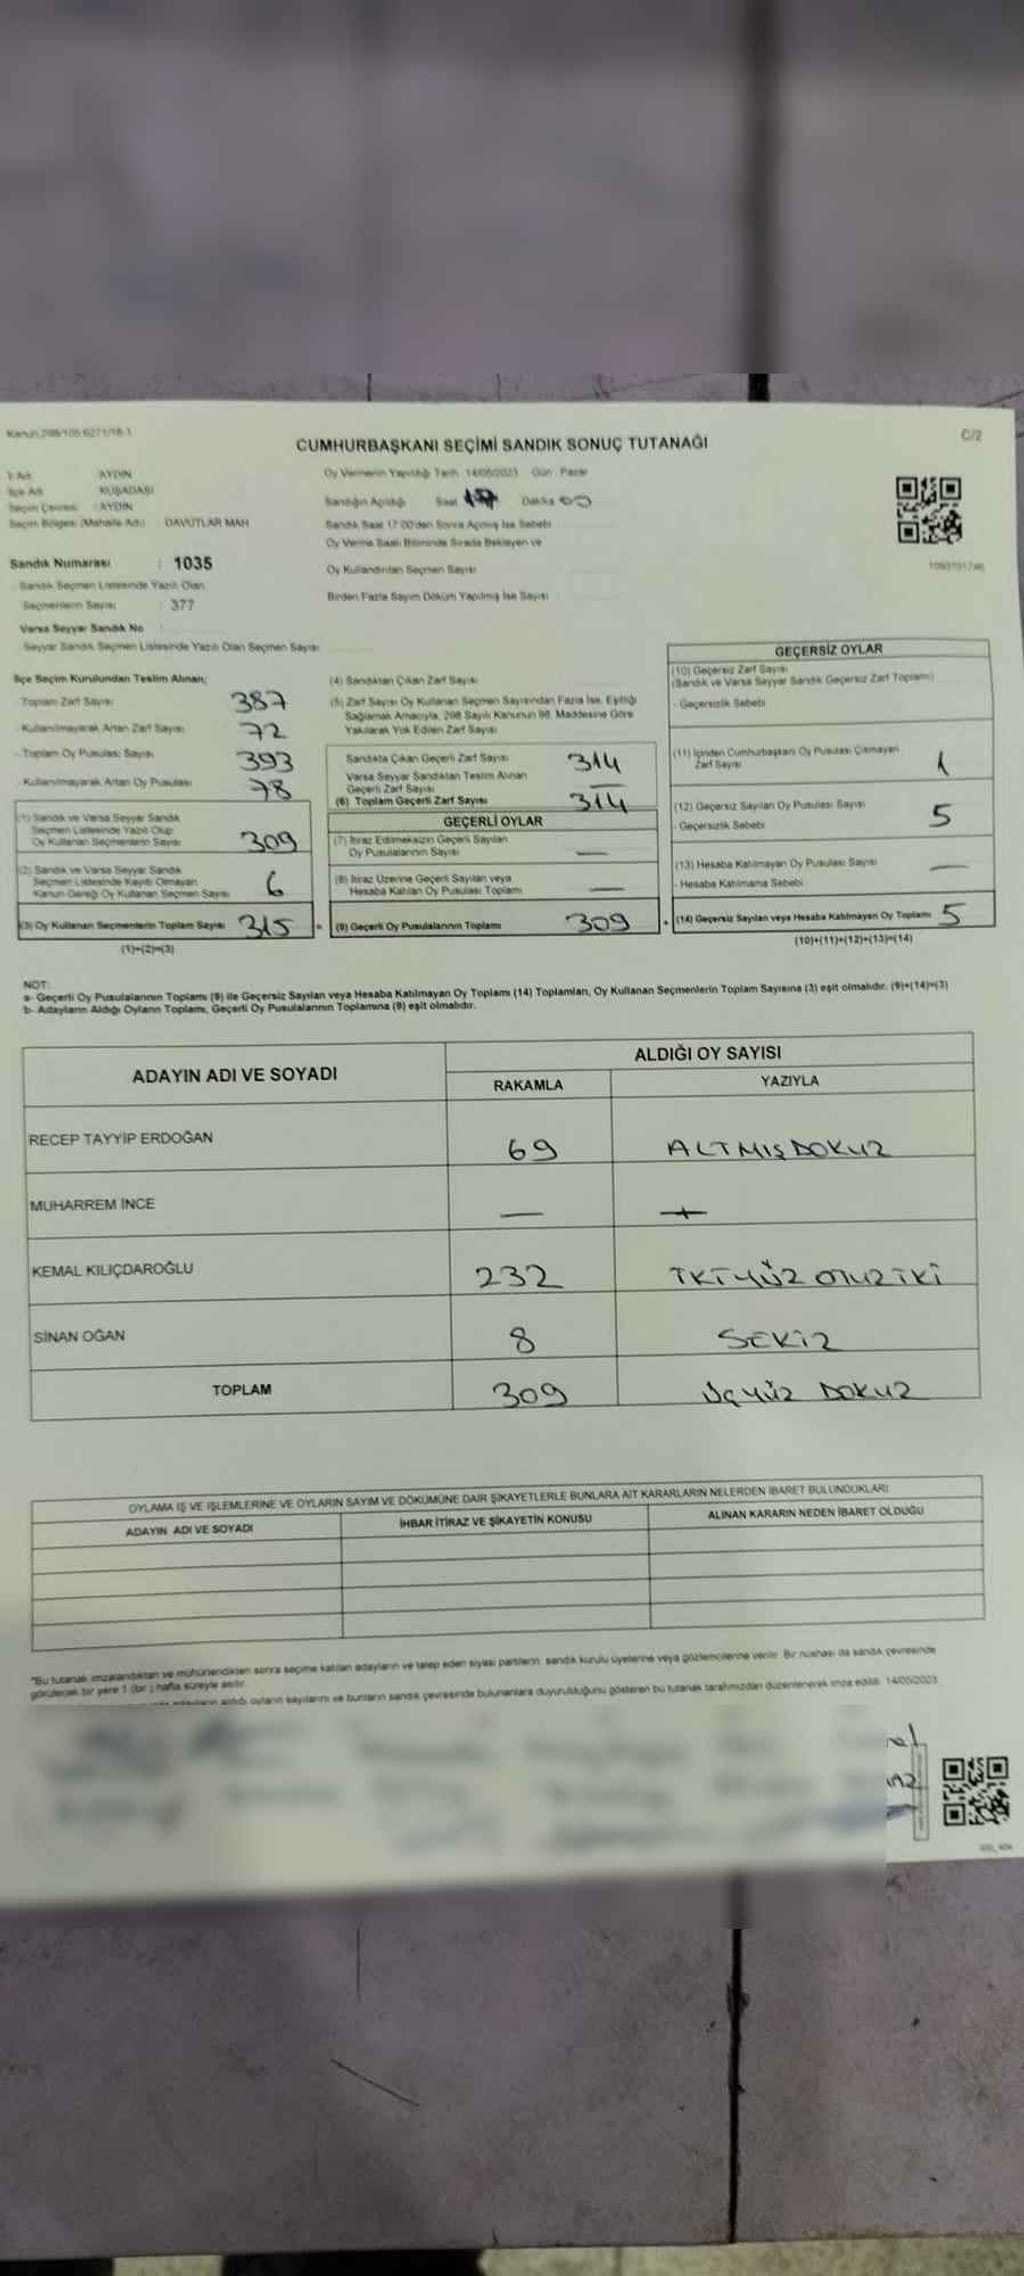 Kanun:298/105;6271/18-1
C/2
CUMHURBAŞKANI SEÇİMİ SANDIK SONUÇ TUTANAĞI
İl Adı : AYDIN
İlçe Adı : KUŞADASI
Seçim Çevresi : AYDIN
Seçim Bölgesi (Mahalle Adı) : DAVUTLAR MAH
Oy Vermenin Yapıldığı Tarih: 14/05/2023 Gün : Pazar
Sandığın Açıldığı Saat 17 Dakika 00
Sandık Saat 17:00'den Sonra Açılmış İse Sebebi
Oy Verme Saati Bitiminde Sırada Bekleyen ve
Oy Kullandırılan Seçmen Sayısı
Birden Fazla Sayım Döküm Yapılmış İse Sayısı
Sandık Numarası : 1035
- Sandık Seçmen Listesinde Yazılı Olan
Seçmenlerin Sayısı : 377
Varsa Seyyar Sandık No
- Seyyar Sandık Seçmen Listesinde Yazılı Olan Seçmen Sayısı
İlçe Seçim Kurulundan Teslim Alınan;
- Toplam Zarf Sayısı 387
- Kullanılmayarak Artan Zarf Sayısı 72
- Toplam Oy Pusulası Sayısı 393
- Kullanılmayarak Artan Oy Pusulası 78
(1) Sandık ve Varsa Seyyar Sandık
Seçmen Listesinde Yazılı Olup
Oy Kullanan Seçmenlerin Sayısı 309
(2) Sandık ve Varsa Seyyar Sandık
Seçmen Listesinde Kayıtlı Olmayan
Kanun Gereği Oy Kullanan Seçmen Sayısı 6
(3) Oy Kullanan Seçmenlerin Toplam Sayısı 315
(1)+(2)=(3)
(4) Sandıktan Çıkan Zarf Sayısı
(5) Zarf Sayısı Oy Kullanan Seçmen Sayısından Fazla İse, Eşitliği
Sağlamak Amacıyla, 298 Sayılı Kanunun 98. Maddesine Göre
Yakılarak Yok Edilen Zarf Sayısı
Sandıkta Çıkan Geçerli Zarf Sayısı 314
Varsa Seyyar Sandıktan Teslim Alınan
Geçerli Zarf Sayısı —
(6) Toplam Geçerli Zarf Sayısı 314
GEÇERLİ OYLAR
(7) İtiraz Edilmeksizin Geçerli Sayılan
Oy Pusulalarının Sayısı —
(8) İtiraz Üzerine Geçerli Sayılan veya
Hesaba Katılan Oy Pusulası Toplamı —
= (9) Geçerli Oy Pusulalarının Toplamı 309
GEÇERSİZ OYLAR
(10) Geçersiz Zarf Sayısı
(Sandık ve Varsa Seyyar Sandık Geçersiz Zarf Toplamı)
- Geçersizlik Sebebi
(11) İçinden Cumhurbaşkanı Oy Pusulası Çıkmayan
Zarf Sayısı 1
(12) Geçersiz Sayılan Oy Pusulası Sayısı
- Geçersizlik Sebebi 5
(13) Hesaba Katılmayan Oy Pusulası Sayısı —
- Hesaba Katılmama Sebebi
+ (14) Geçersiz Sayılan veya Hesaba Katılmayan Oy Toplamı 5
(10)+(11)+(12)+(13)=(14)
NOT:
a- Geçerli Oy Pusulalarının Toplamı (9) ile Geçersiz Sayılan veya Hesaba Katılmayan Oy Toplamı (14) Toplamları, Oy Kullanan Seçmenlerin Toplam Sayısına (3) eşit olmalıdır. (9)+(14)=(3)
b- Adayların Aldığı Oyların Toplamı, Geçerli Oy Pusulalarının Toplamına (9) eşit olmalıdır.
ADAYIN ADI VE SOYADI ALDIĞI OY SAYISI
RAKAMLA YAZIYLA
RECEP TAYYİP ERDOĞAN 69 ALTMIŞDOKUZ
MUHARREM İNCE —
KEMAL KILIÇDAROĞLU 232 İKİYÜZ OTUZ İKİ
SİNAN OĞAN 8 SEKİZ
TOPLAM 309 ÜÇYÜZ DOKUZ
OYLAMA İŞ VE İŞLEMLERİNE VE OYLARIN SAYIM VE DÖKÜMÜNE DAİR ŞİKAYETLERLE BUNLARA AİT KARARLARIN NELERDEN İBARET BULUNDUKLARI
ADAYIN ADI VE SOYADI İHBAR İTİRAZ VE ŞİKAYETİN KONUSU ALINAN KARARIN NEDEN İBARET OLDUĞU
*Bu tutanak imzalandıktan ve mühürlendikten sonra seçime katılan adayların ve talep eden siyasi partilerin sandık kurulu üyelerine veya gözlemcilerine verilir. Bir nüshası da sandık çevresinde
görülecek bir yere 1 (bir) hafta süreyle asılır.
adayların aldığı oyların sayılarını ve bunların sandık çevresinde bulunanlara duyurulduğunu gösteren bu tutanak tarafımızdan düzenlenerek imza edildi. 14/05/2023